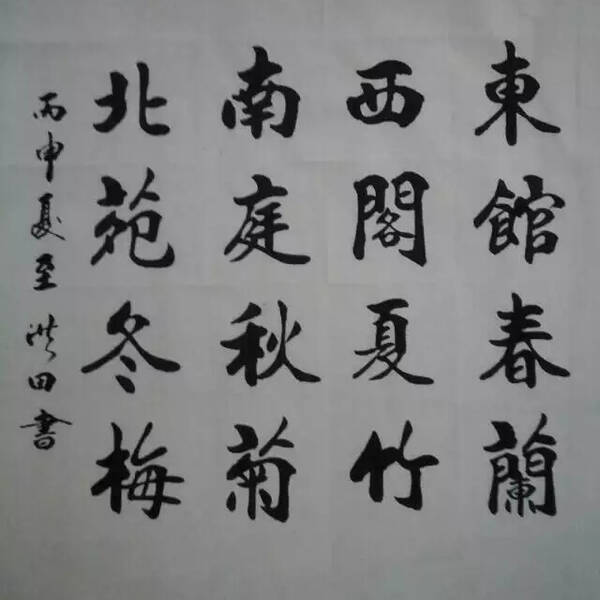 東館春蘭
西閣夏竹
南庭秋菊
北苑冬梅
丙申夏至洪田書